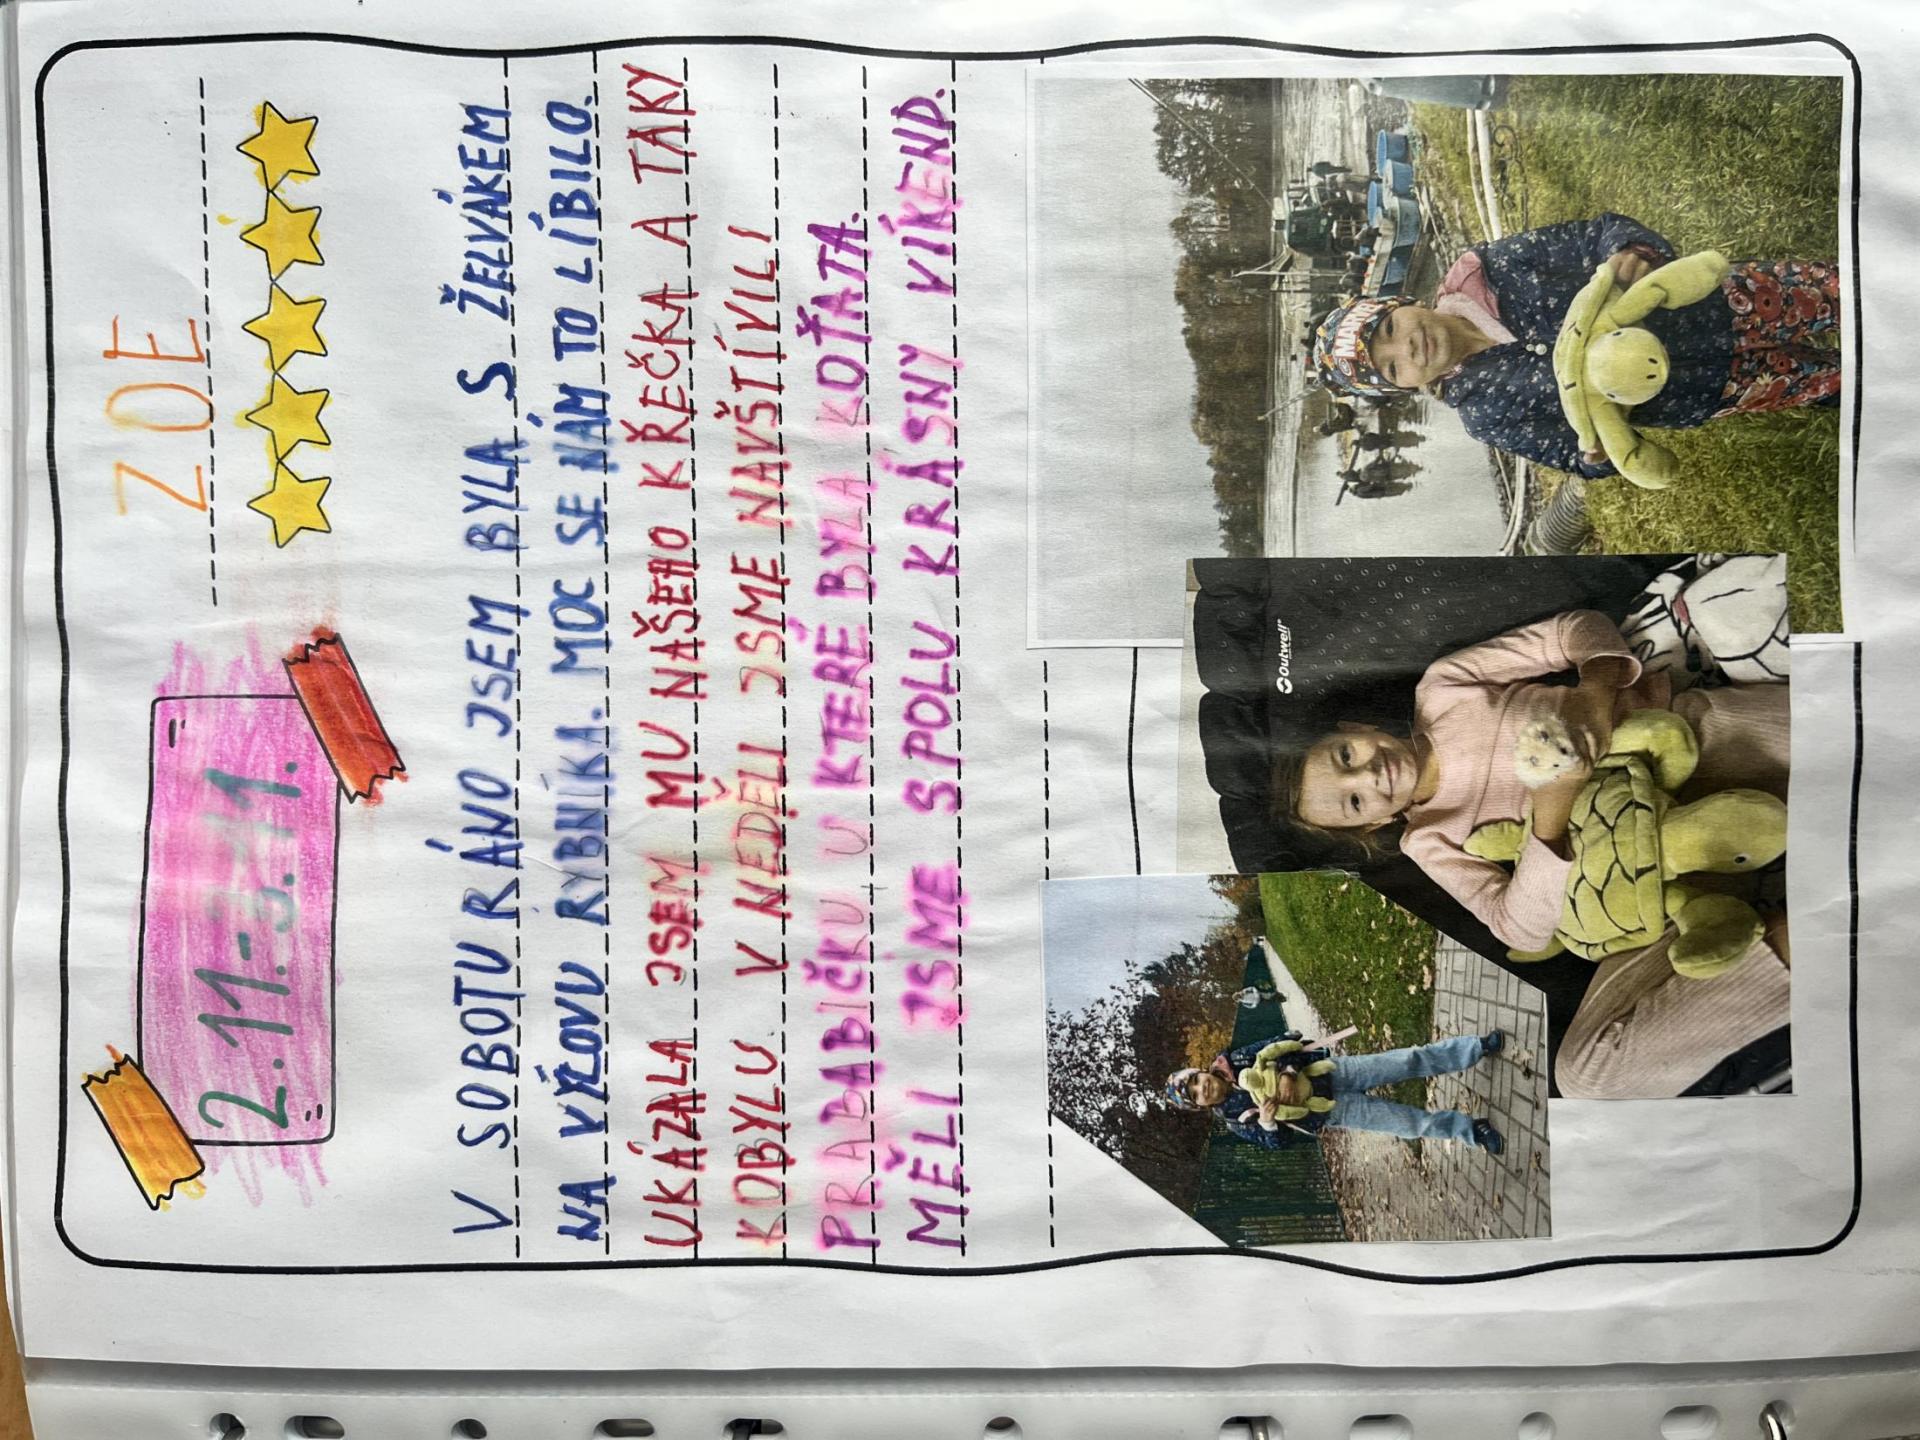 2.11.-3.11.
ZOE
V SOBOTU RÁNO JSEM BYLA S ŽELVÁKEM
NA VÝLOVU RYBNÍKA. MOC SE NÁM TO LÍBILO.
UKÁZALA JSEM MU NAŠEHO KŘEČKA A TAKY
KOBYLU. V NEDĚLI JSME NAVŠTÍVILI
PRABABIČKU U KTERÉ BYLA KOŤATA.
MĚLI JSME SPOLU KRÁSNÝ VÍKEND.
Outwell